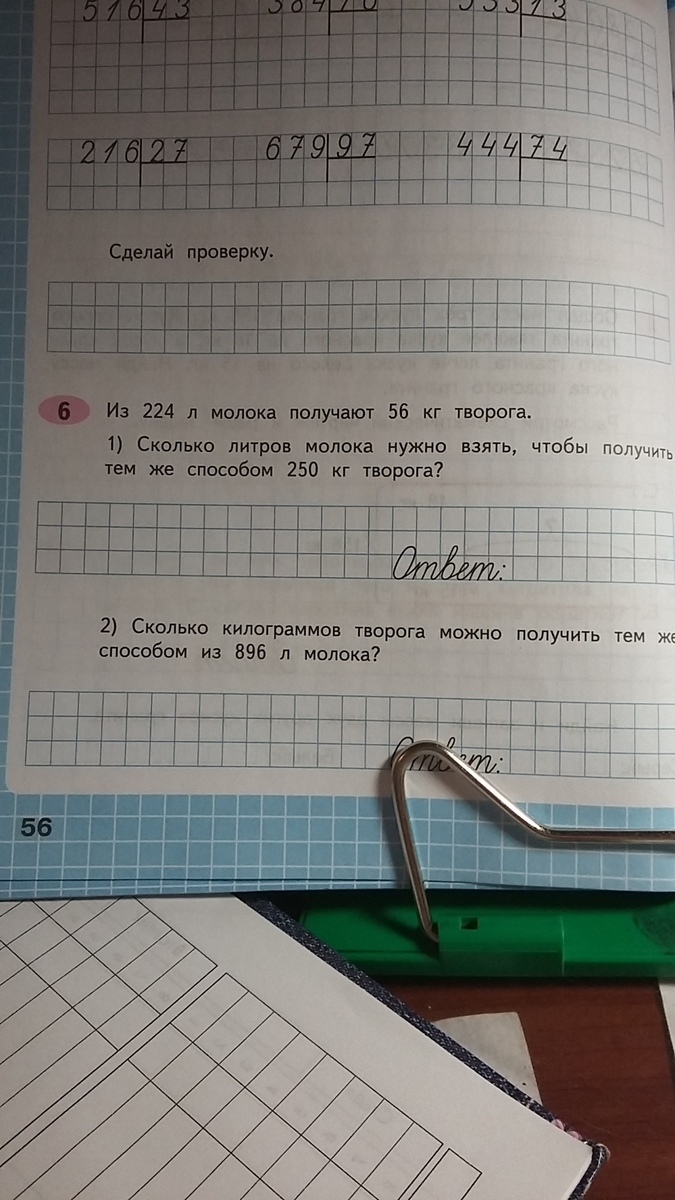 516 43
216 27 679 97 444 74
Сделай проверку.
6 Из 224 л молока получают 56 кг творога.
1) Сколько литров молока нужно взять, чтобы получить
тем же способом 250 кг творога?
Ответ:
2) Сколько килограммов творога можно получить тем же
способом из 896 л молока?
Ответ:
56